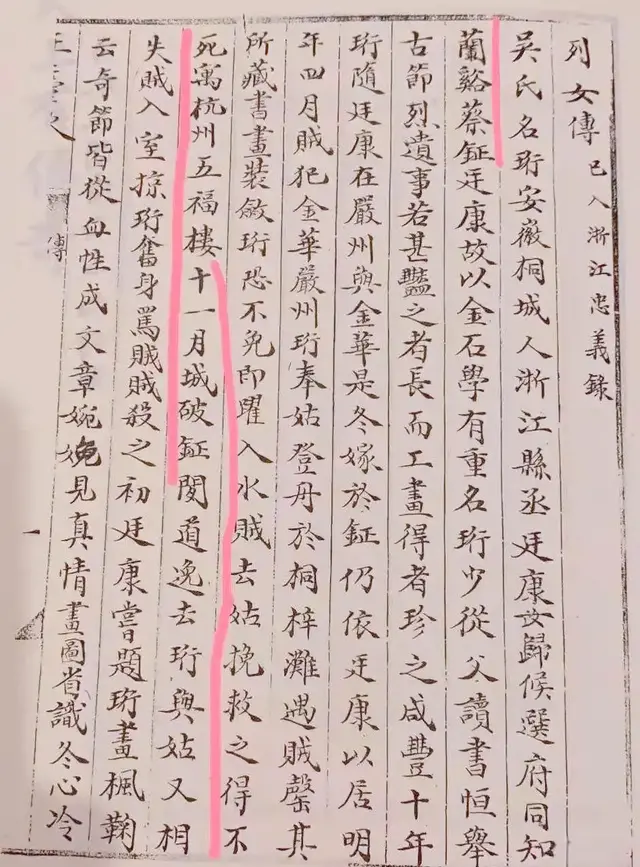 列女傳已入浙江忠義錄
吳氏名珩安徽桐城人浙江縣丞廷康女歸候選府同知
蘭谿蔡鉦廷康故以金石學有重名珩少從父讀書恒舉
古節烈遺事若甚豔之者長而工畫得者珍之咸豐十年
珩隨廷康在嚴州與金華是冬嫁於鉦仍依廷康以居明
年四月賊犯金華嚴州珩奉姑登舟於桐梓灘遇賊罄其
所藏書畫裝斂珩恐不免即躍入水賊去姑挽救之得不
死寓杭州五福樓十一月城破鉦閒道逸去珩與姑又相
失賊入室掠珩奮身罵賊賊殺之初廷康嘗題珩畫楓鞠
云奇節皆從血性成文章婉娩見真情畫圖省識冬心冷
傳
一